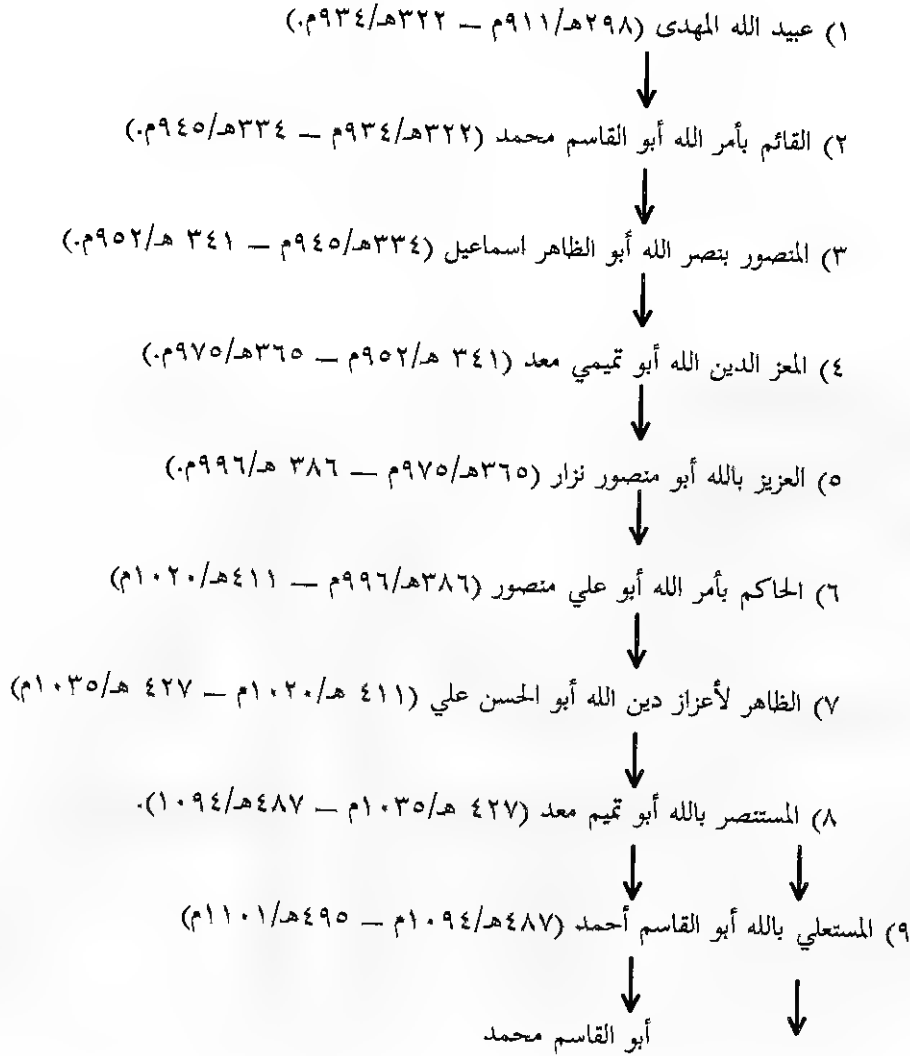 ١) عبيد الله المهدى (٢٩٨هـ/٩١١م — ٣٢٢هـ/٩٣٤م.)
٢) القائم بأمر الله أبو القاسم محمد (٣٢٢هـ/٩٣٤م — ٣٣٤هـ/٩٤٥م.)
٣) المنصور بنصر الله أبو الظاهر اسماعيل (٣٣٤هـ/٩٤٥م — ٣٤١ هـ/٩٥٢م.)
٤) المعز الدين الله أبو تميمي معد (٣٤١ هـ/٩٥٢م — ٣٦٥هـ/٩٧٥م.)
٥) العزيز بالله أبو منصور نزار (٣٦٥هـ/٩٧٥م — ٣٨٦ هـ/٩٩٦م.)
٦) الحاكم بأمر الله أبو علي منصور (٣٨٦هـ/٩٩٦م — ٤١١هـ/١٠٢٠م)
٧) الظاهر لأعزاز دين الله أبو الحسن علي (٤١١ هـ/١٠٢٠م — ٤٢٧ هـ/١٠٣٥م)
٨) المستنصر بالله أبو تميم معد (٤٢٧ هـ/١٠٣٥م — ٤٨٧هـ/١٠٩٤).
٩) المستعلي بالله أبو القاسم أحمد (٤٨٧هـ/١٠٩٤م — ٤٩٥هـ/١١٠١م)
أبو القاسم محمد